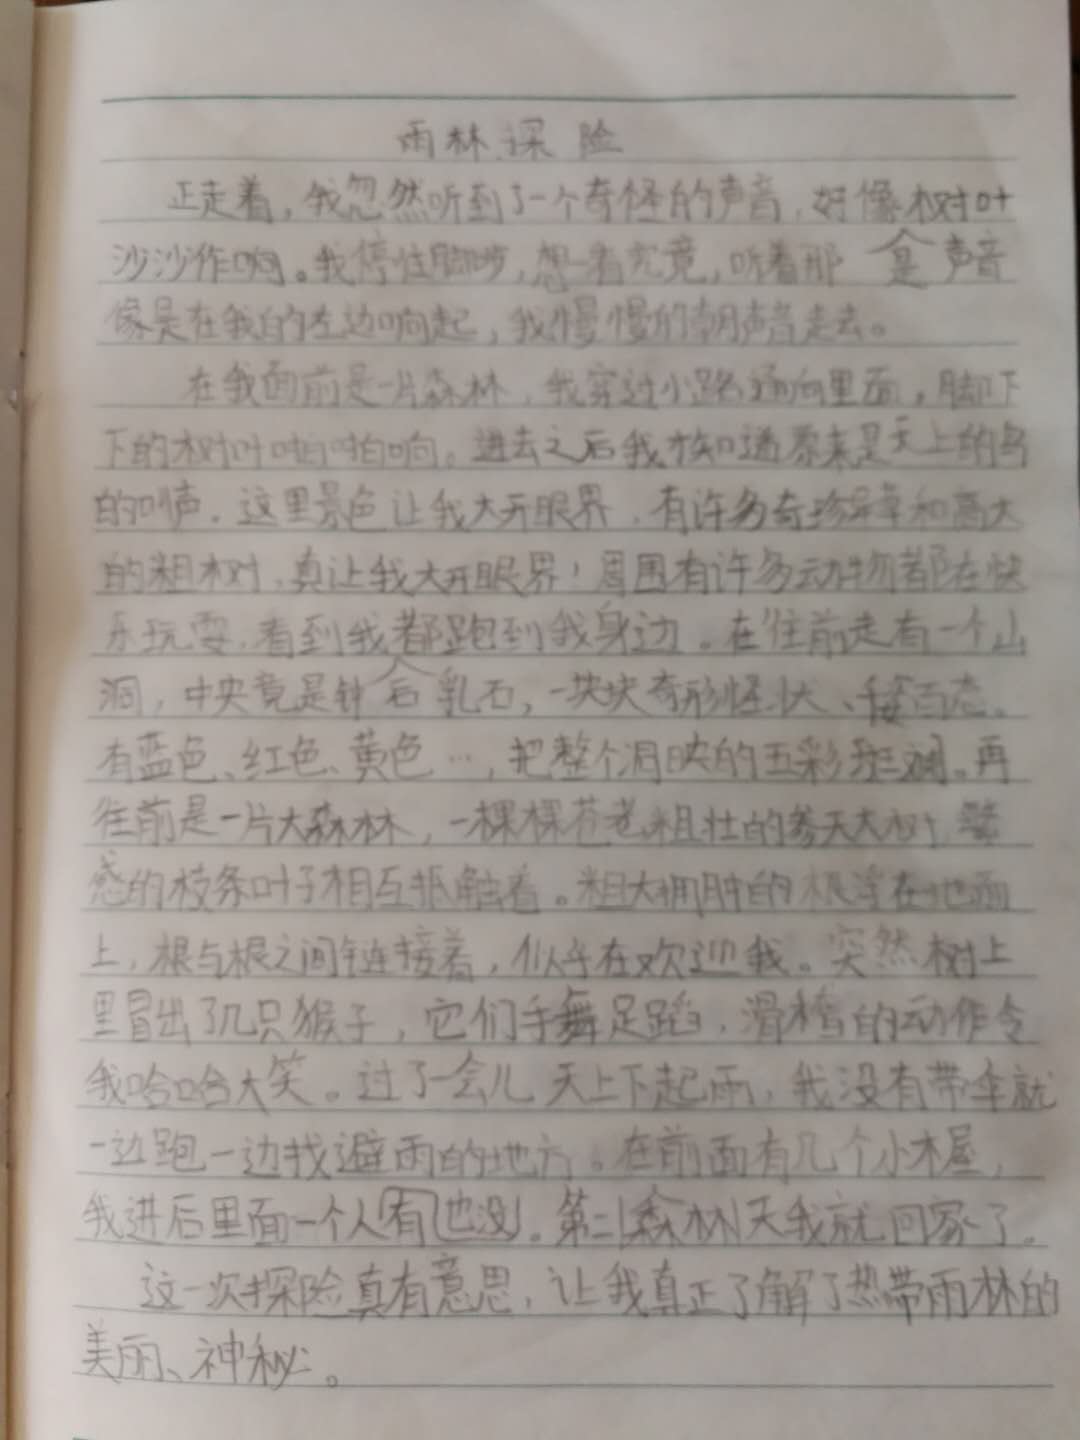 雨林探险
正走着，我忽然听到了一个奇怪的声音，好像树叶
沙沙作响。我停住脚步，想一看究竟，听着那是声音
像是在我的左边响起，我慢慢的朝声音走去。
在我面前是一片森林，我穿过小路通向里面，脚下
下的树叶啪啪响。进去之后我才知道原来是天上的鸟
的叫声。这里景色让我大开眼界，有许多奇珍异草和高大
的粗树，真让我大开眼界！周围有许多动物都在快
乐玩耍，看到我都跑到我身边。在往前走有一个山
洞，中央竟是钟石乳石，一块块奇形怪状、千姿百态。
有蓝色、红色、黄色…，把整个洞映的五彩斑斓。再
往前是一片大森林，一棵棵苍老粗壮的参天大树，繁
的枝条叶子相互抵触着。粗大拥肿的根浮在地面
上，根与根之间链接着，似乎在欢迎我。突然树上
里冒出了几只猴子，它们手舞足蹈，滑稽的动作令
我哈哈大笑。过了一会儿天上下起雨，我没有带伞就
一边跑一边找避雨的地方。在前面有几个小木屋，
我进后里面一个人有也没。第二森林天我就回家了。
这一次探险真有意思，让我真正了解了热带雨林的
美丽、神秘。